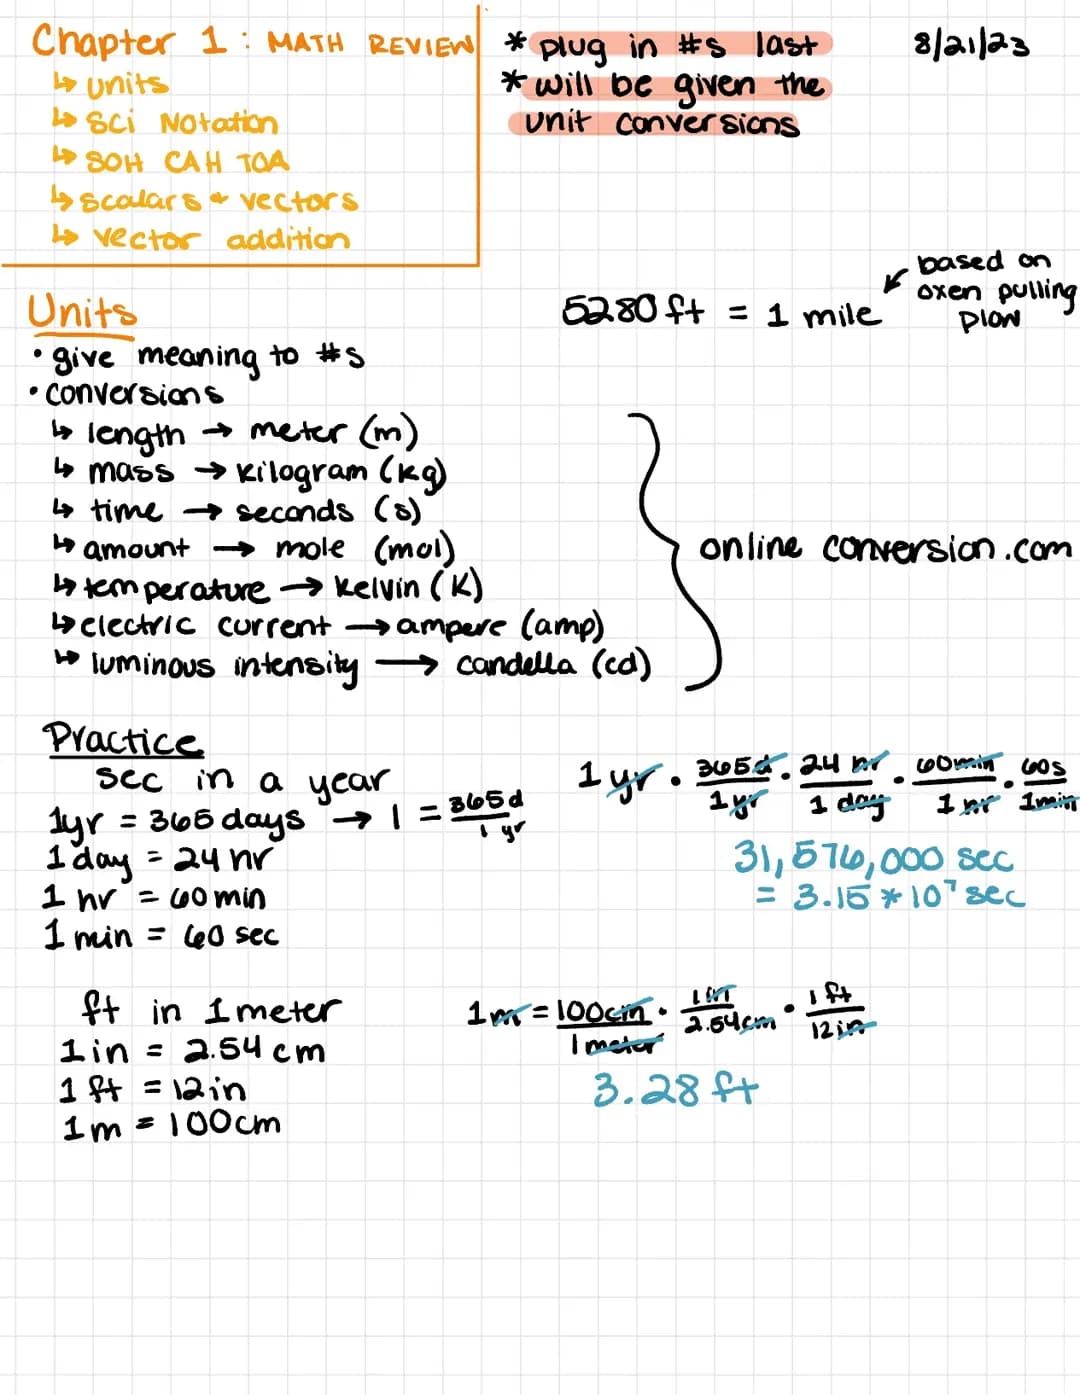 Chapter 1: MATH REVIEW
↳ units
↳ Sci Notation
↳ SOH CAH TOA
↳ scalars & vectors
↳ vector addition
* plug in #s last
* will be given the
unit conversions
8/21/23
Units
• give meaning to #s
• conversions
↳ length → meter (m)
↳ mass → kilogram (kg)
↳ time → seconds (s)
↳ amount → mole (mol)
↳ temperature → kelvin (K)
↳ electric current → ampere (amp)
↳ luminous intensity → candella (cd)
5280 ft = 1 mile
based on
oxen pulling
plow
online conversion.com
Practice
sec in a year
1yr = 365 days → 1 = 365d / 1 yr
1 day = 24 hr
1 hr = 60 min
1 min = 60 sec
1 yr · 365d / 1 yr · 24 hr / 1 day · 60min / 1 hr · 60s / 1min
31,576,000 sec
= 3.15 * 10⁷ sec
ft in 1 meter
1in = 2.54 cm
1 ft = 12in
1m = 100cm
1m = 100cm / 1 meter · 1 in / 2.54cm · 1 ft / 12in
3.28 ft